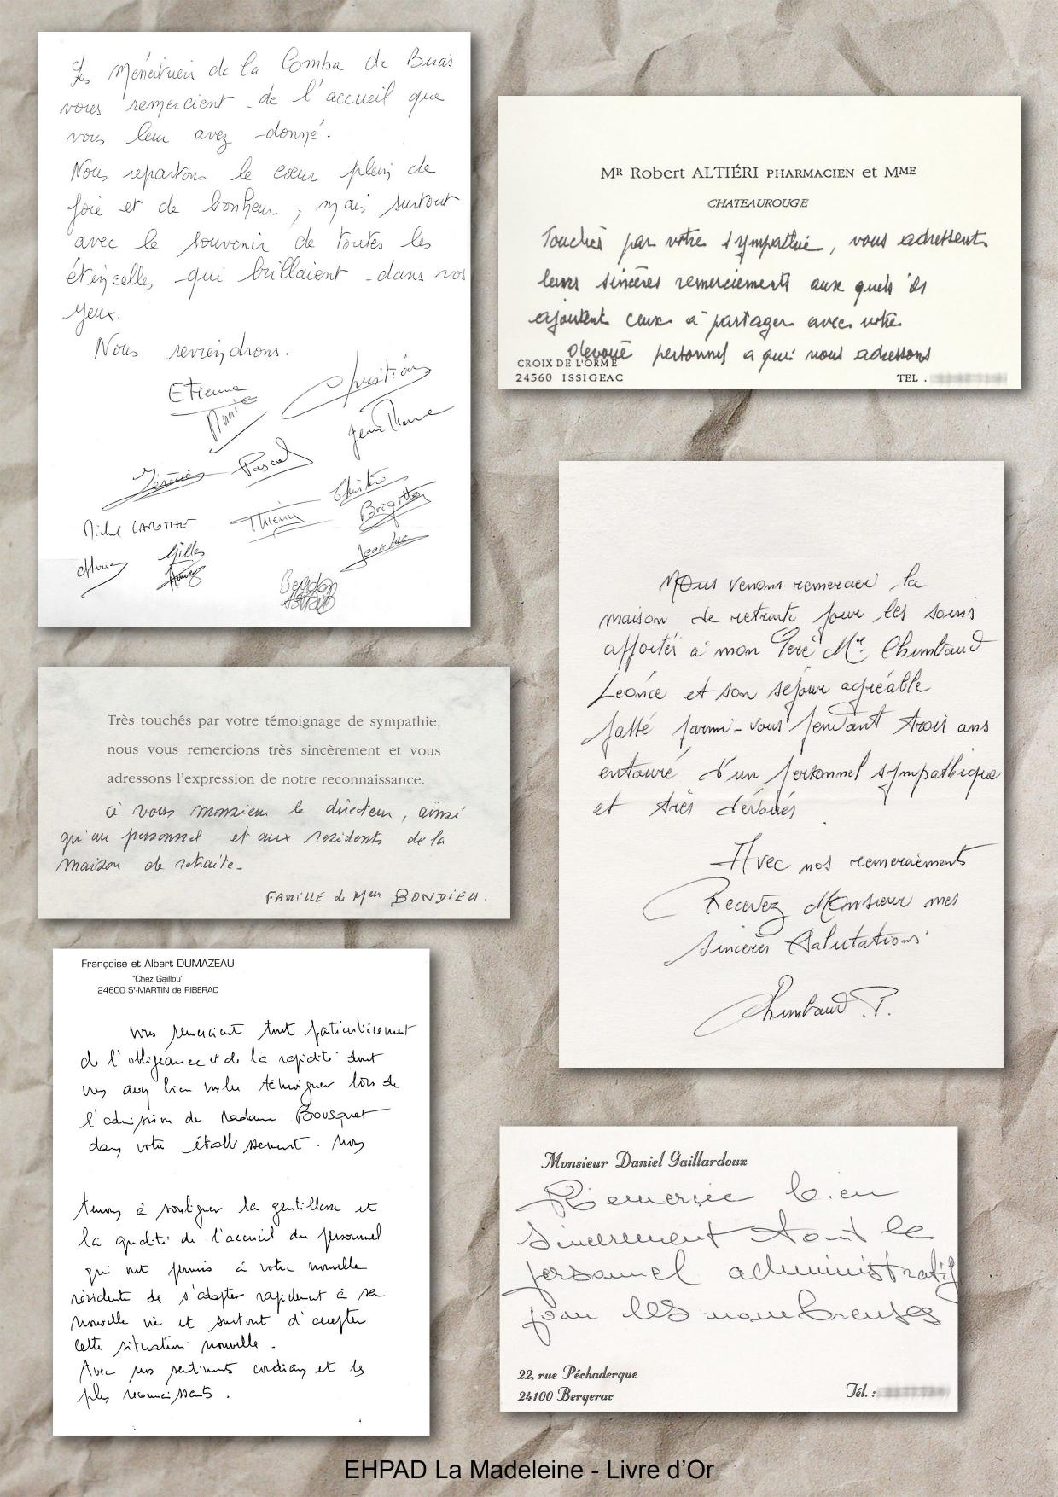 Les Ménétriers de la Comba de Buas
vous remercient de l'accueil que
vous leur avez donné.
Nous repartons le cœur plein de
joie et de bonheur, mais surtout
avec le souvenir de toutes les
étincelles qui brillaient dans vos
yeux.
Nous reviendrons.
Etienne
Christian
Marie
Jean Marc
Pascal
Thierry
Brigitte
Gilles
Mr Robert ALTIÉRI PHARMACIEN et MME
CHATEAUROUGE
Touchés par votre sympathie, vous adressent
leurs sincères remerciements aux quels ils
ajoutent ceux à partager avec votre
dévoué personnel a qui nous adressons
CROIX DE L'ORME
24560 ISSIGEAC
TEL.
Nous venons remercier la
maison de retraite pour les soins
apportés à mon Père Mr Chimbaud
Léonce et son séjour agréable
passé parmi-vous pendant trois ans
entouré d'un personnel sympathique
et très dévoués.
Avec nos remerciements
Recevez Monsieur mes
sincères Salutations.
Chimbaud P.
Très touchés par votre témoignage de sympathie
nous vous remercions très sincèrement et vous
adressons l'expression de notre reconnaissance.
à vous monsieur le directeur, ainsi
qu'au personnel et aux résidents de la
maison de retraite.
FAMILLE de Mme BONDIEU.
Françoise et Albert DUMAZEAU
"Chez Gaillou"
24600 St-MARTIN de RIBERAC
vous remercient tout particulièrement
de l'obligeance et de la rapidité dont
vous avez bien voulu témoigner lors de
l'admission de Madame Bousquet
dans votre établissement. Nous
tenons à souligner la gentillesse et
la qualité de l'accueil du personnel
qui ont permis à votre nouvelle
résidente de s'adapter rapidement à sa
nouvelle vie et surtout d'accepter
cette situation nouvelle.
Avec nos sentiments cordiaux et les
plus reconnaissants.
Monsieur Daniel Gaillardoux
Remercie bien
sincèrement tout le
personnel administratif
pour les nombreuses
22, rue Péchaderque
24100 Bergerac
Tél. :
EHPAD La Madeleine - Livre d'Or